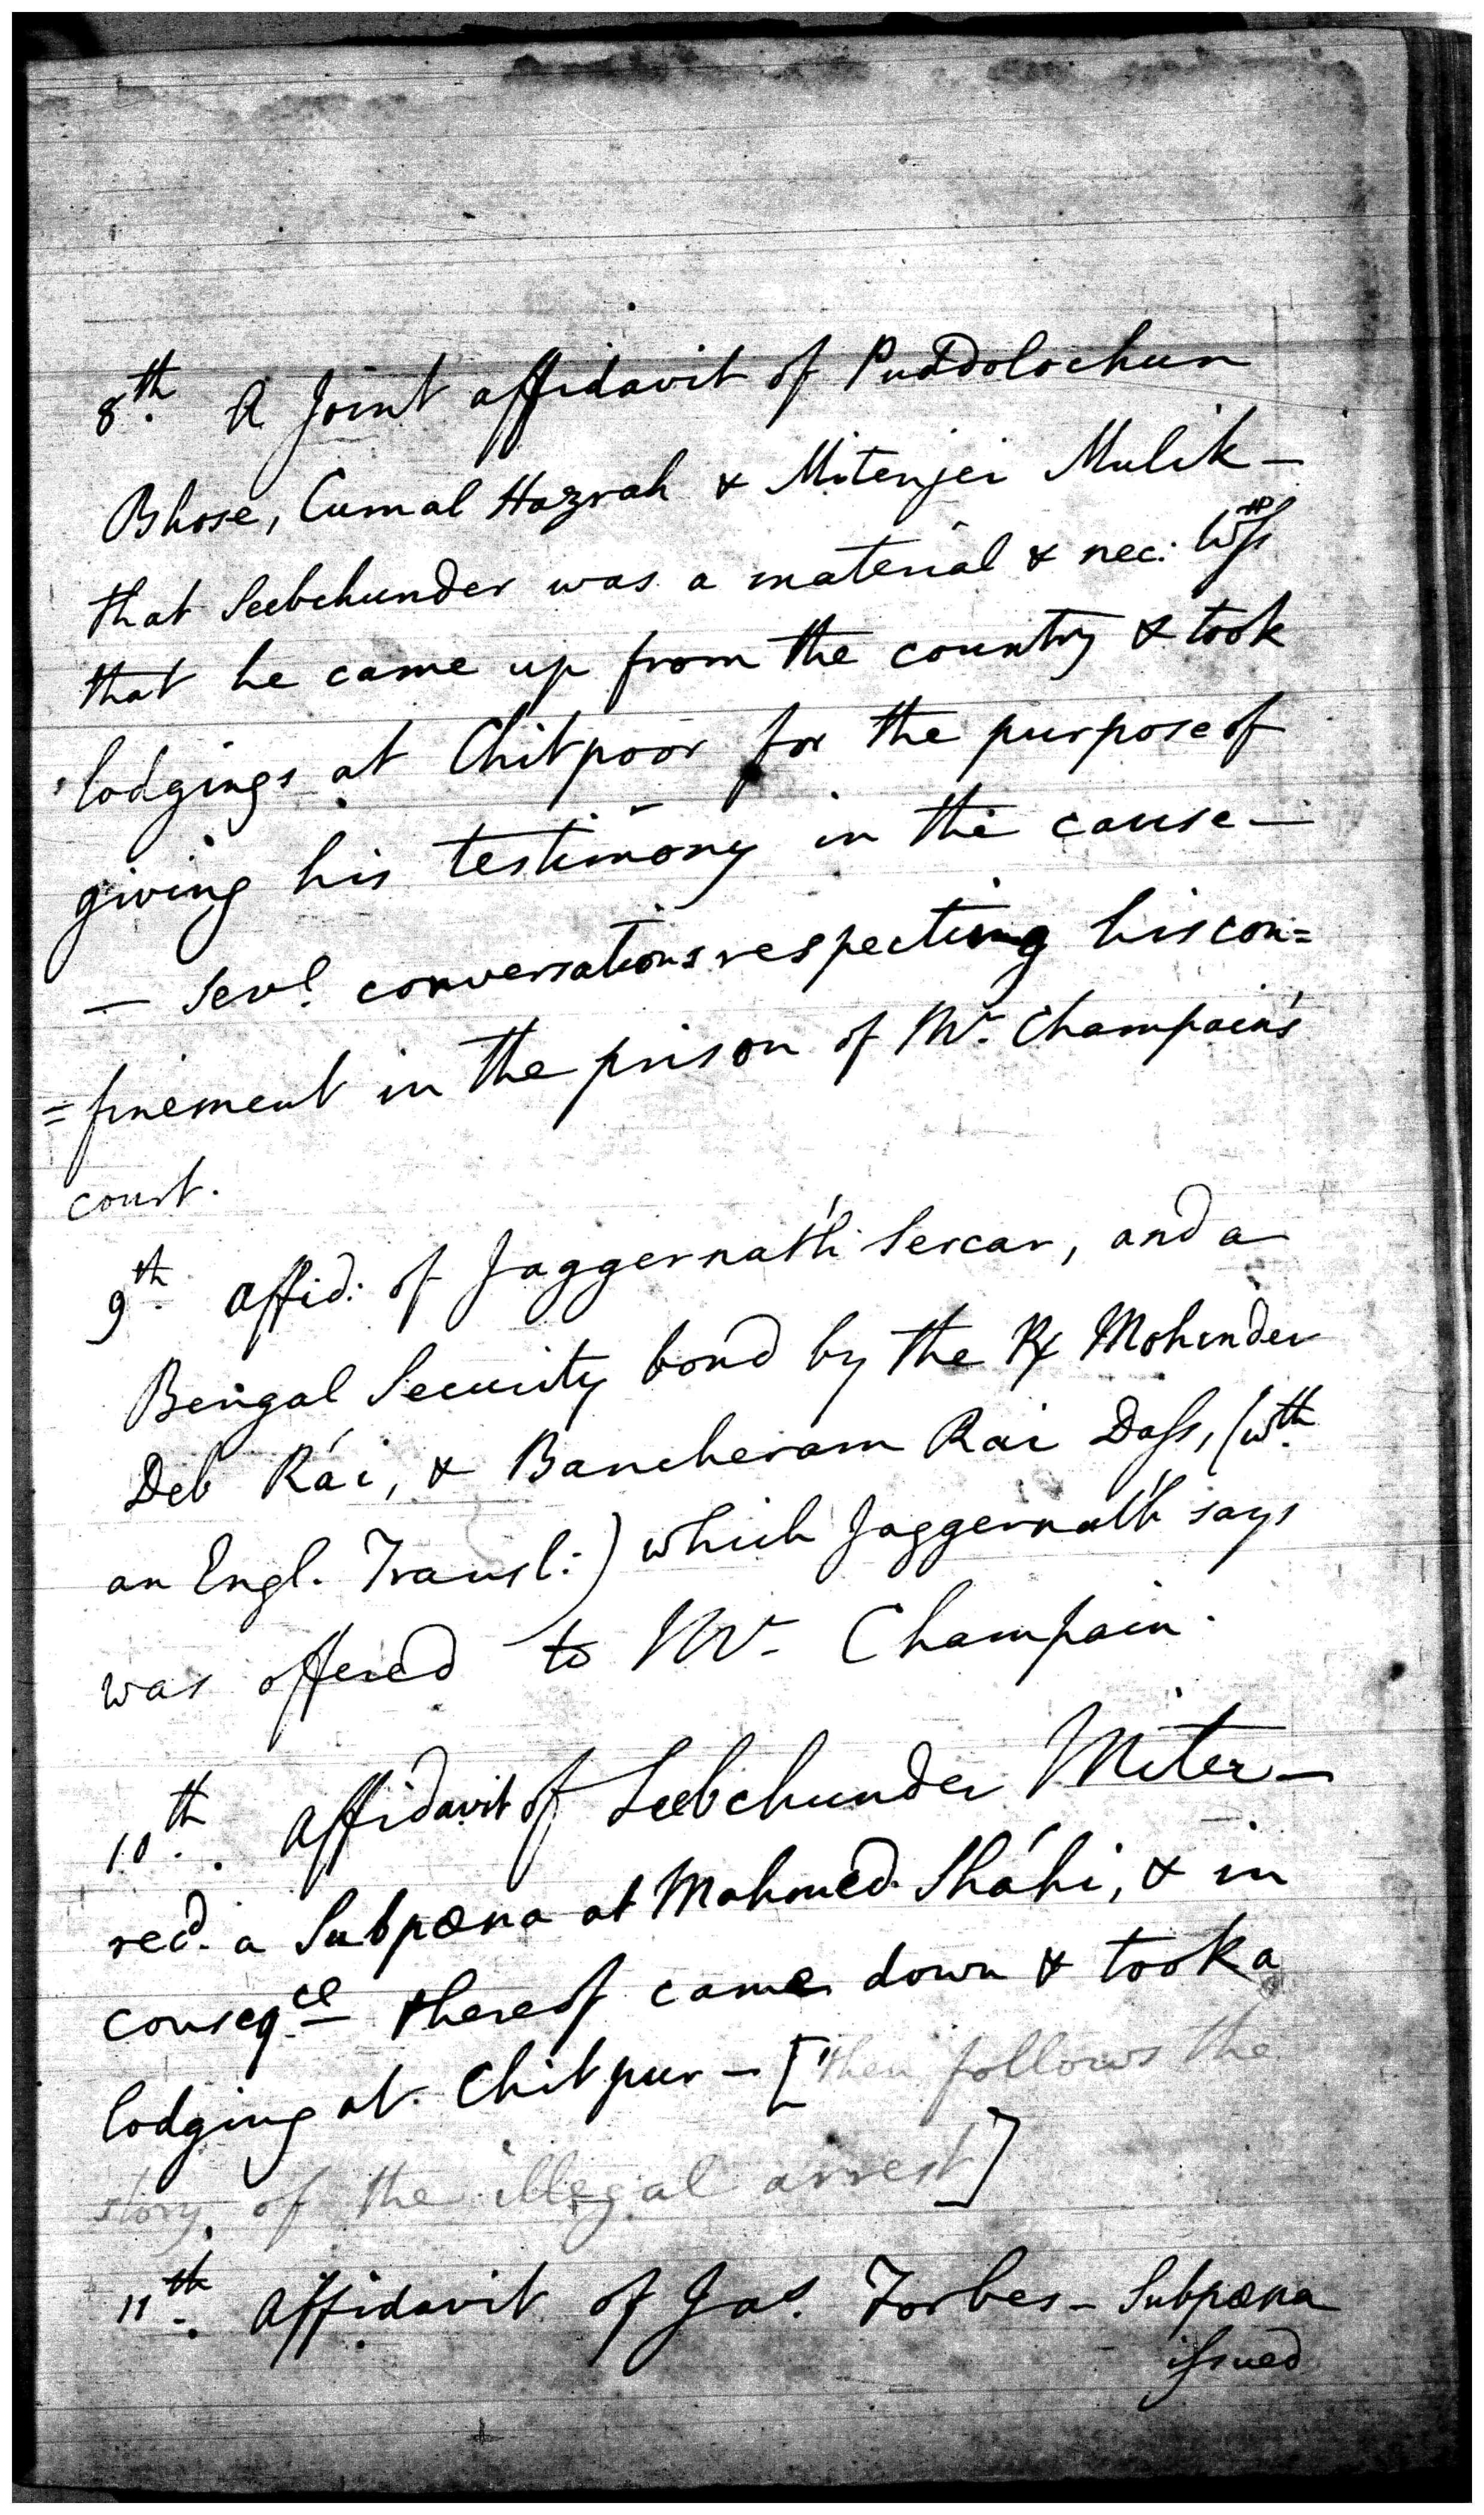 8th. A Joint affidavit of Puddolochun
Bhose, Cumal Hazrah & Mitenjei Mulik —
that Seebchunder was a material & nec:
that he came up from the country & took
lodgings at Chitpoor for the purpose of
giving his testimony in the cause —
— Sevl. conversations respecting his con=
=finement in the prison of Mr. Champain's
court.
9th. Affid: of Jaggernath Sercar, and a
Bengal Security bond by the Mohender
Deb Rái, & Bancheram Rai Dass, (wth.
an Engl. Transl:) which Jaggernath says
was offered to Mr. Champain.
10th. Affidavit of Seebchunder Miter —
recd. a Subpœna at Mahmed Sháhi, & in
conseqce. thereof came down & took a
lodging at Chitpur — [then follows the
story of the illegal arrest]
11th. Affidavit of Jas. Forbes — Subpœna
issued